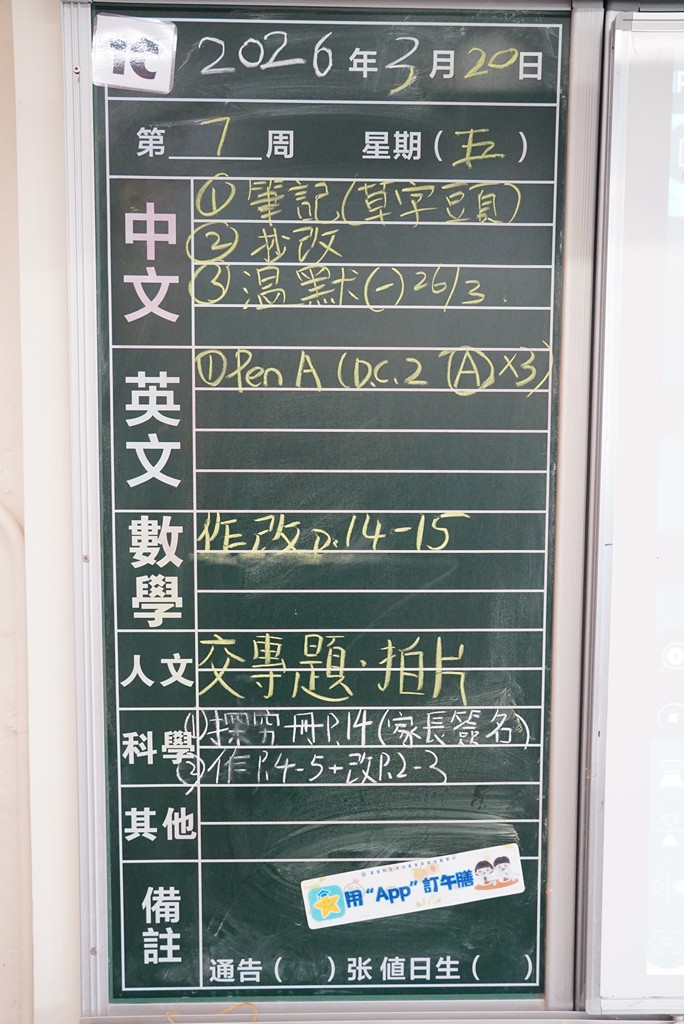 1C
2026年3月20日
第7周 星期(五)
中文
①筆記(草字頭)
②抄改
③温默(一)26/3.
英文
①Pen A (D.C.2 Ⓐ×3)
數學
作改p.14-15
人文
交專題·拍片
科學
(1)探究冊P.14(家長簽名)
(2)作P.4-5+改P.2-3
其他
備註
用“App”訂午膳
通告( )张 值日生( )